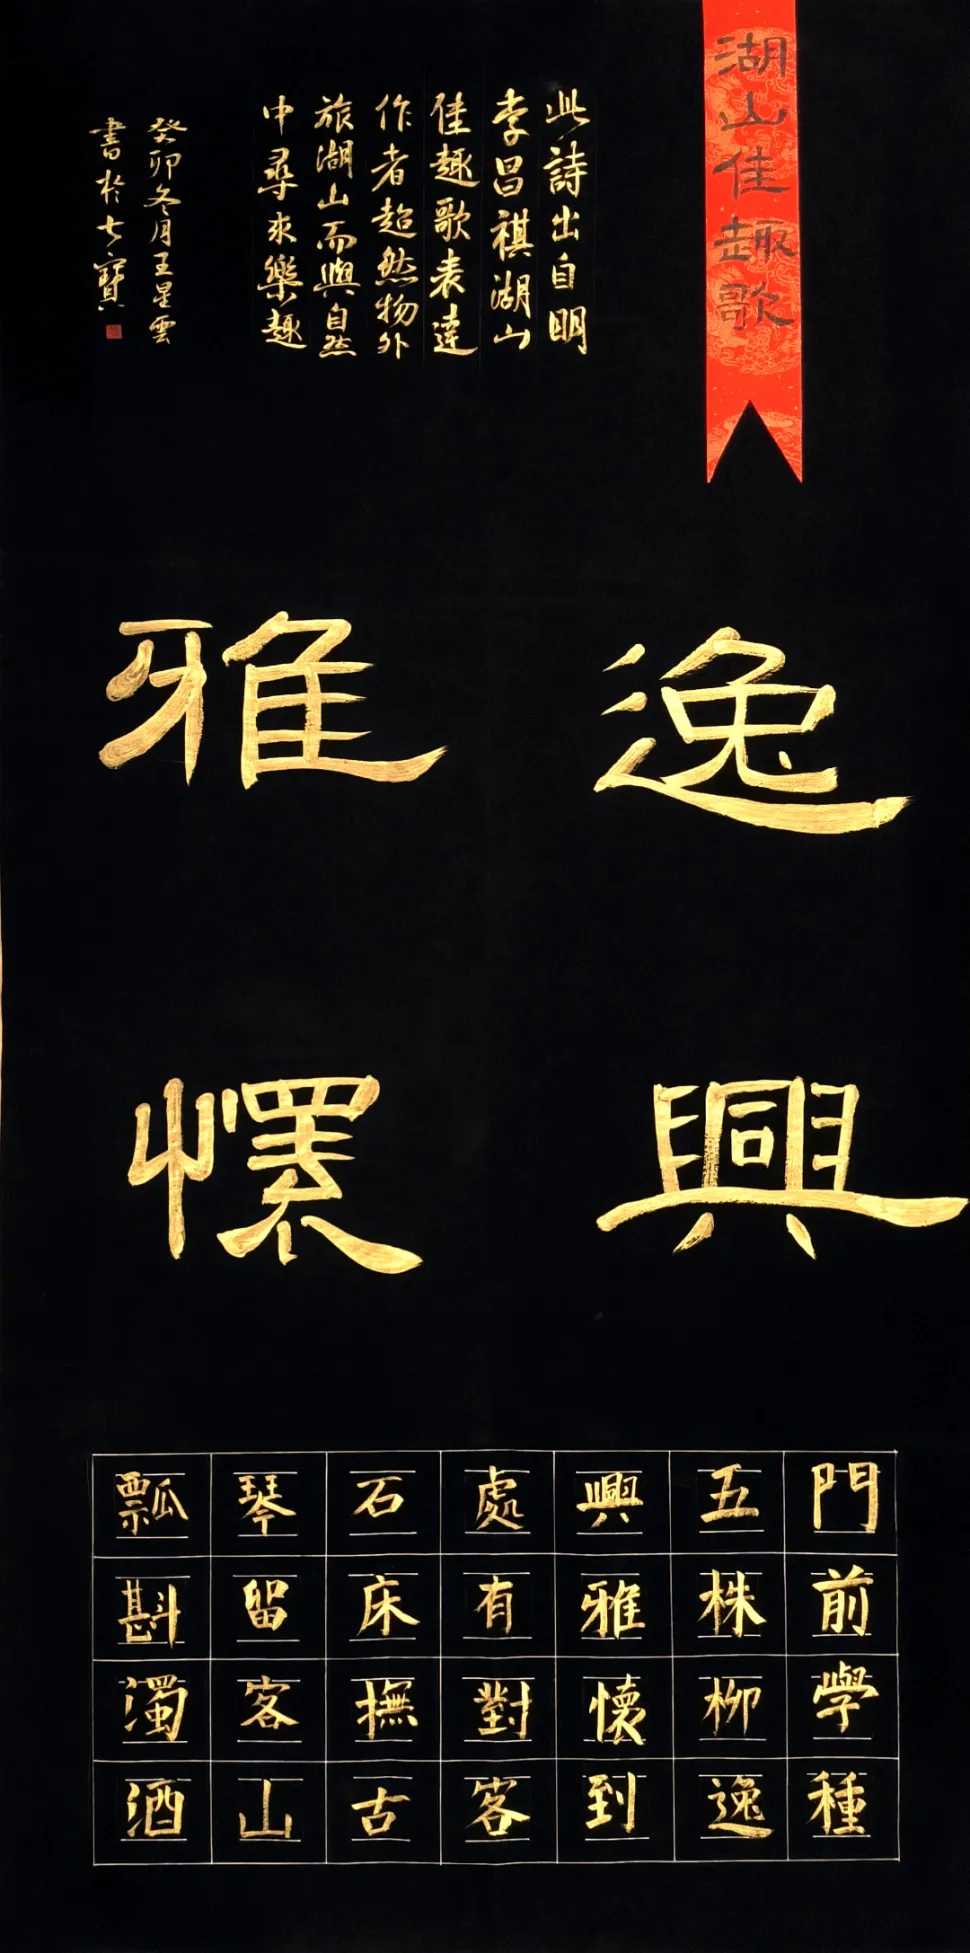 湖山佳趣歌
此詩出自明
李昌祺湖山
佳趣歌表達
作者超然物外
旅湖山而與自然
中尋求樂趣
癸卯冬月王星雲
書於七寶
逸興
雅懷
門前學種
五株柳逸
興雅懷到
處有對客
石床撫古
琴留客山
瓢斟濁酒